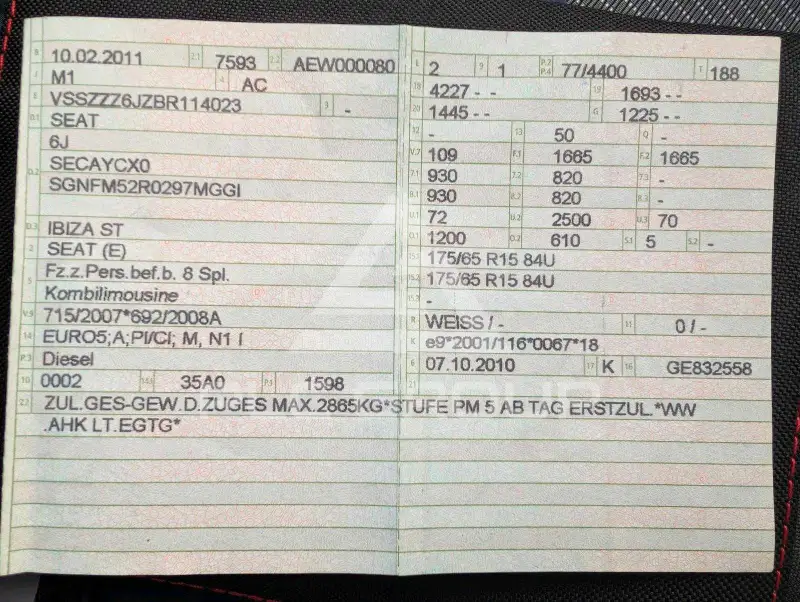 B 10.02.2011 2.1 7593 2.2 AEW000080
J M1 4 AC
E VSSZZZ6JZBR114023 3 -
D.1 SEAT
6J
D.2 SECAYCX0
SGNFM52R0297MGGI
D.3 IBIZA ST
2 SEAT (E)
5 Fz.z.Pers.bef.b. 8 Spl.
Kombilimousine
V.9 715/2007*692/2008A
14 EURO5;A;PI/CI; M, N1 I
P.3 Diesel
10 0002 14.1 35A0 P.1 1598
L 2 9 1 P.2 P.4 77/4400 T 188
18 4227 - - 19 1693 - -
20 1445 - - G 1225 - -
12 - 13 50 Q -
V.7 109 F.1 1665 F.2 1665
7.1 930 7.2 820 7.3 -
8.1 930 8.2 820 8.3 -
U.1 72 U.2 2500 U.3 70
O.1 1200 O.2 610 S.1 5 S.2 -
15.1 175/65 R15 84U
15.2 175/65 R15 84U
15.3 -
R WEISS / - 11 0 / -
K e9*2001/116*0067*18
6 07.10.2010 17 K 16 GE832558
21
22 ZUL.GES-GEW.D.ZUGES MAX.2865KG*STUFE PM 5 AB TAG ERSTZUL.*WW
.AHK LT.EGTG*